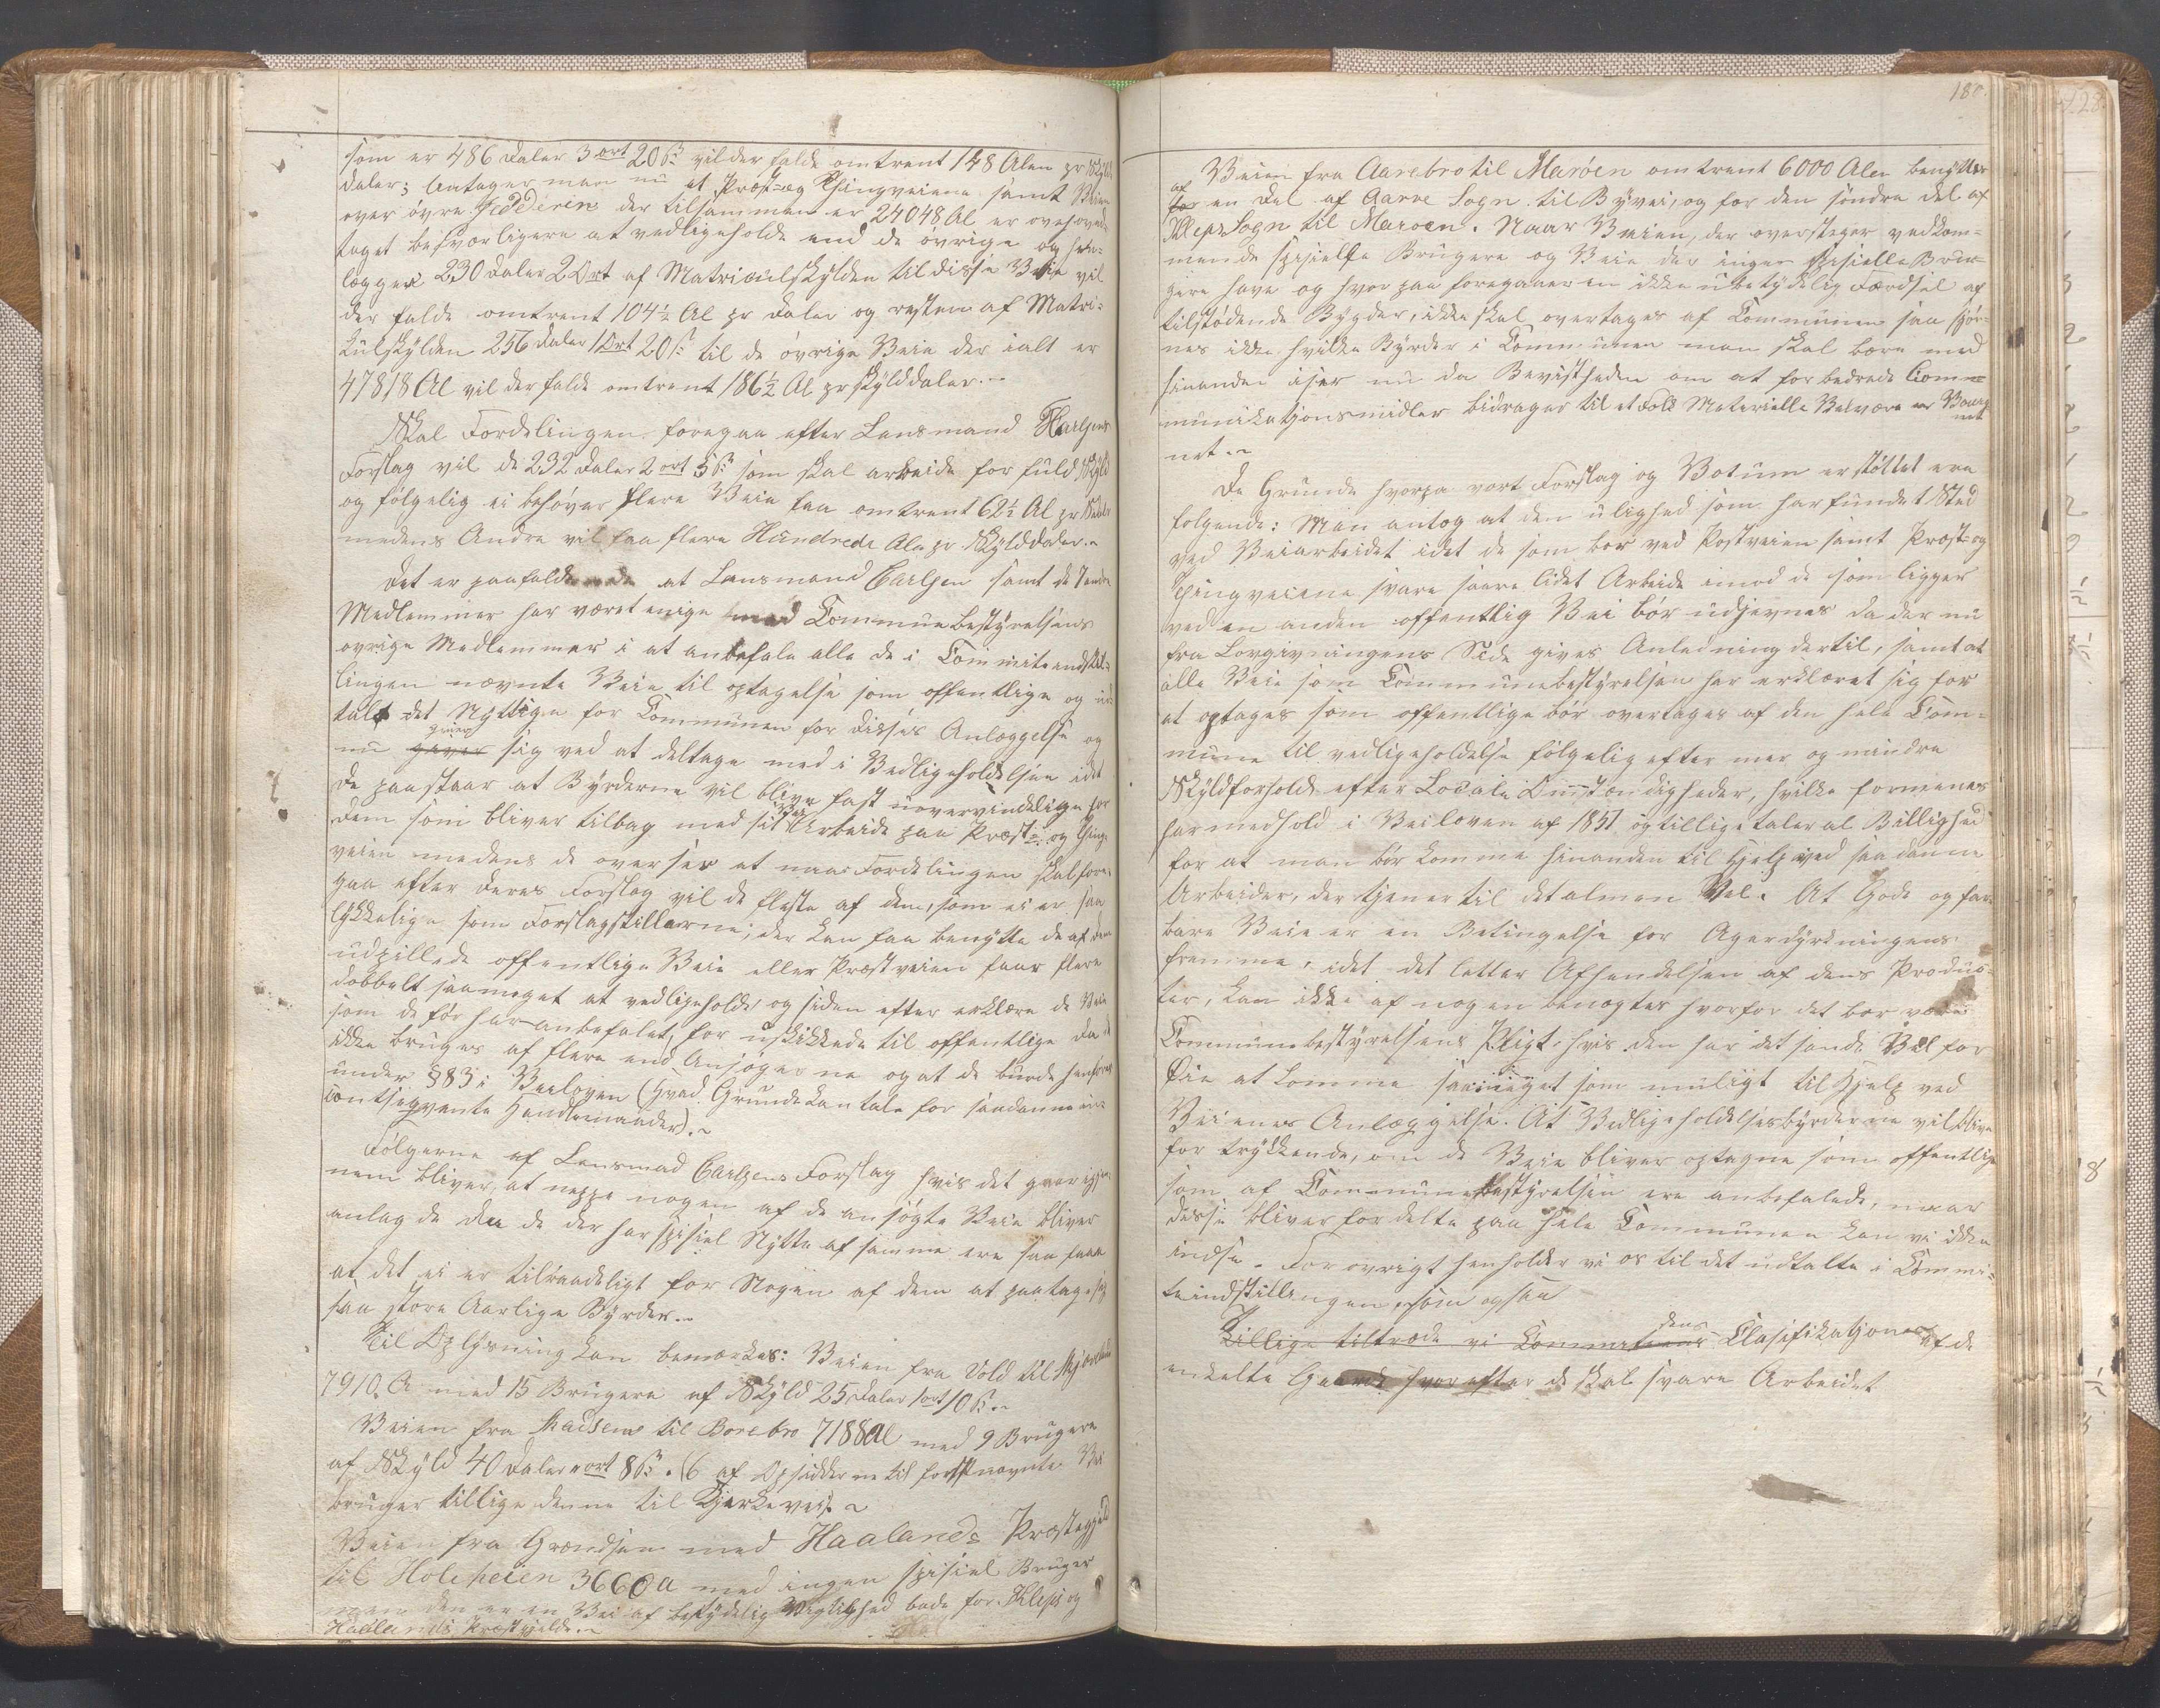 som er 486 Daler 3 ort 20 ß vil der falde omtrent 148 Alen pr Skyld
daler; Antager man nu at Præst= og Thingveiene samt Veien
over övre Jedderen der tilsammen er 24048 Al er oveshoved
taget besværligere at vedligeholde end de övrige og hen-
lægger 230 Daler 2 Ort af Matriculskylden til disse Veie vil
der falde omtrent 104½ Al pr Daler og resten af Matri-
kulskylden 256 Daler 1 Ort 20 ß til de övrige Veie der ialt er
47818 Al vil der falde omtrent 186½ Al pr skylddaler.-
Skal Fordelingen foregaa efter Lensmand Carlsens
Forslag vil de 232 Daler 2 ort 5 ß som skal arbeide for fuld Skyld
og fölgelig ei behöver flere Veie faa omtrent 62½ Al pr Skdaler
medens Andre vil faa flere Hundrede Alen pr Skylddaler.-
Det er paafaldende at Lensmand Carlsen samt de 7 andre
Medlemmer har været enige med Communebestyrelsens
övrige Medlemmer i at anbefale alle de i Committeindstil-
lingen nævnte Veie til optagelse som offentlige og ud
talt det Nyttige for Communen for disses Anlæggelse og
nu
sig ved at deltage med i Vedligeholdelsen idet
de paastaar at Byrderne vil blive fast uovervindelige for
Dem som bliver tilbag med sit Vei Arbeide paa Præst= og Thing-
veien medens de overser at naar Fordelingen skal fore-
gaa efter deres Forslag vil de fleste af dem, som ei er saa
lykkelige som Forslagstillerne, der kan faa benytte de af dem
udpillede offentlige Veie eller Præstveien faar flere
dobbelt saameget at vedligeholde, og siden efter erklære de Veie
som de för har anbefalet, for uskikkede til offentlige da de
ikke bruges af flere end Ansögerne og at de burde henföres
under § 83 i Veiloven (Hvad Grunde kan tale for saadanne in-
contseqvente Handlemaader).-
Fölgerne af Lensmad Carlsens Forslag hvis det gaar igjen-
nem bliver, at neppe nogen af de ansögte Veie bliver
anlagde da de der har spesiel Nytte af samme ere saa faaa
at det ei er tilraadeligt for Nogen af dem at paatage sig
saa store Aarlige Byrder.-
Til Oplysning kan bemærkes: Veien fra Vold til
7910 A med 15 Brugere af Skyld 25 Daler 1 ort 10 ß.-
Veien fra til Borebro 7188 Al med 9 Brugere
af Skyld 40 Daler " ort 8 ß. (6 af Opsidderne til forstnævnte Vei
bruger tillige denne til Kjerkevei).-
Veien fra Grændsen med Haalands Præstegjeld
til Holeheien 3660 a med ingen spesiel Bruger
men den er en Vei af betydelig Vigtighed bade for Kleps og
Haalands Præstgjelde.-
180.
Veien fra Aarebro til Maröen omtrent 6000 Alen benyttes
af
for en Del af Aarre Sogn til Byvei, og for den söndre del af
Kleps Sogn til Maroen. Naar Veien, der overstiger vedkom-
mende spesielle Brugere og Veie der ingen spesielle Bru-
gere have og hvor paa foregaaer en ikke ubetydelig Færdsel af
tilstödende Bygder, ikke skal overtages af Communen saa spör-
nes ikke hvilke Byrder i Communen man skal bære med
hinanden især nu da Bevistheden om at forbedrede Com-
munikatjonsmidler bidrager til et Folks Materielle Velvære er
net.-
De Grunde hvorpa vort Forslag og Votum er stöttet ere
folgende: Man antog at den ulighed som har fundet Sted
ved Veiarbeidet idet de som bor ved Postveien samt Præst= og
Thingveiene svare saare lidet Arbeide imod de som ligger
ved en anden offentlig Vei bör udjevnes da der nu
fra Lovgivningens Side gives Anledning dertil, samt at
alle Veie som Communebestyrelsen har erklæret sig for
at optages som offentlige bör overtages af den hele Com-
mune til vedligeholdelse fölgelig efter mer og mindre
Skyldforhold efter Locale Omstændigheder, hvilke formenes
har medhold i Veiloven af 1851 og tillige taler al Billighed
for at man bör komme hinanden til Hjelp ved saadanne
Arbeider, der tjener til det almene Vel. At Gode og far-
bare Veie er en Betingelse for Agerdyrkningens
fremme, idet det letter Afhendelsen af dens Produc-
ter, kan ikke af nogen benægtes hvorfor det bör være
Communebestyrelsens Pligt, hvis den har det sande Vel for
Öie at komme saameget som muligt til Hjelp ved
Veienes Anlæggelse. At Vedligeholdelsesbyrderne vil blive
for trykkende, om de Veie bliver optagne som offentlige
som af Communebestyrelsen ere anbefalede, naar
disse bliver fordelte paa hele Communen kan vi ikke
indse. Forovrigt henholder vi os til det udtalte i Commi-
teindstillingen, som ogsaa
dens
Tillige tiltræde vi Commiteens Clasifikatjon af de
enkelte Gaarde hvorefter de skal svare Arbeidet